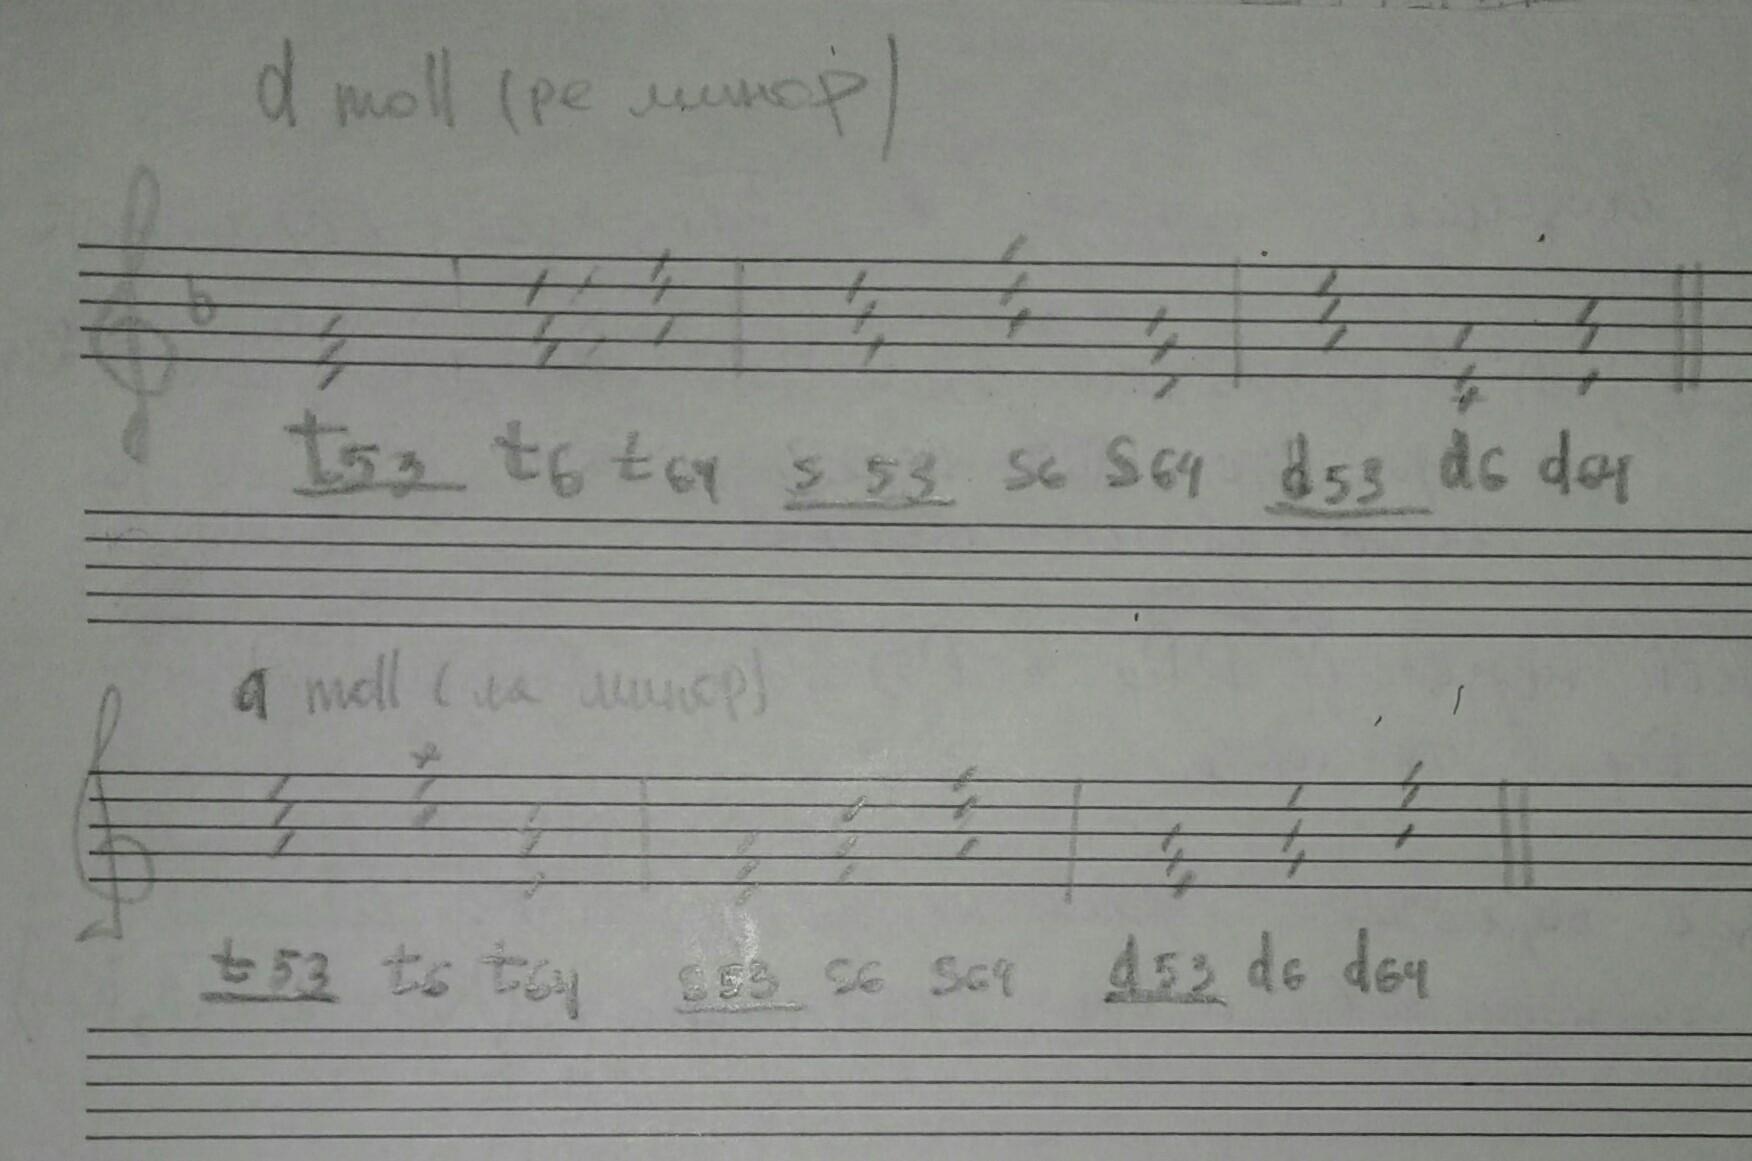 d moll (ре минор)
t53 t6 t64 s 53 s6 s64 d53 d6 d64
a moll (ля минор)
t53 t6 t64 s53 s6 s64 d53 d6 d64